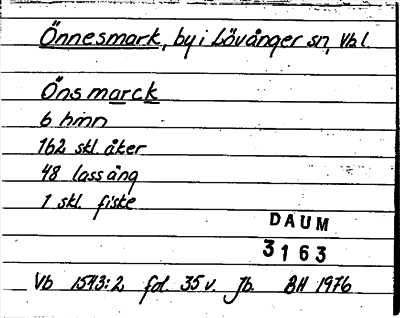 Önnesmark, by i Lövånger sn, Vb.l.
Öns marck
6 hmn
162 skl. åker
48 lass äng
1 skl. fiske
DAUM
3163
Vb 1543:2 fol. 35 v. Jb. BH 1976